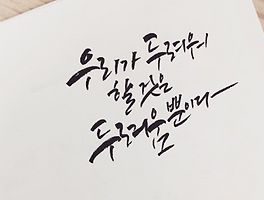 우리가 두려워
할 것은
두려움뿐이다